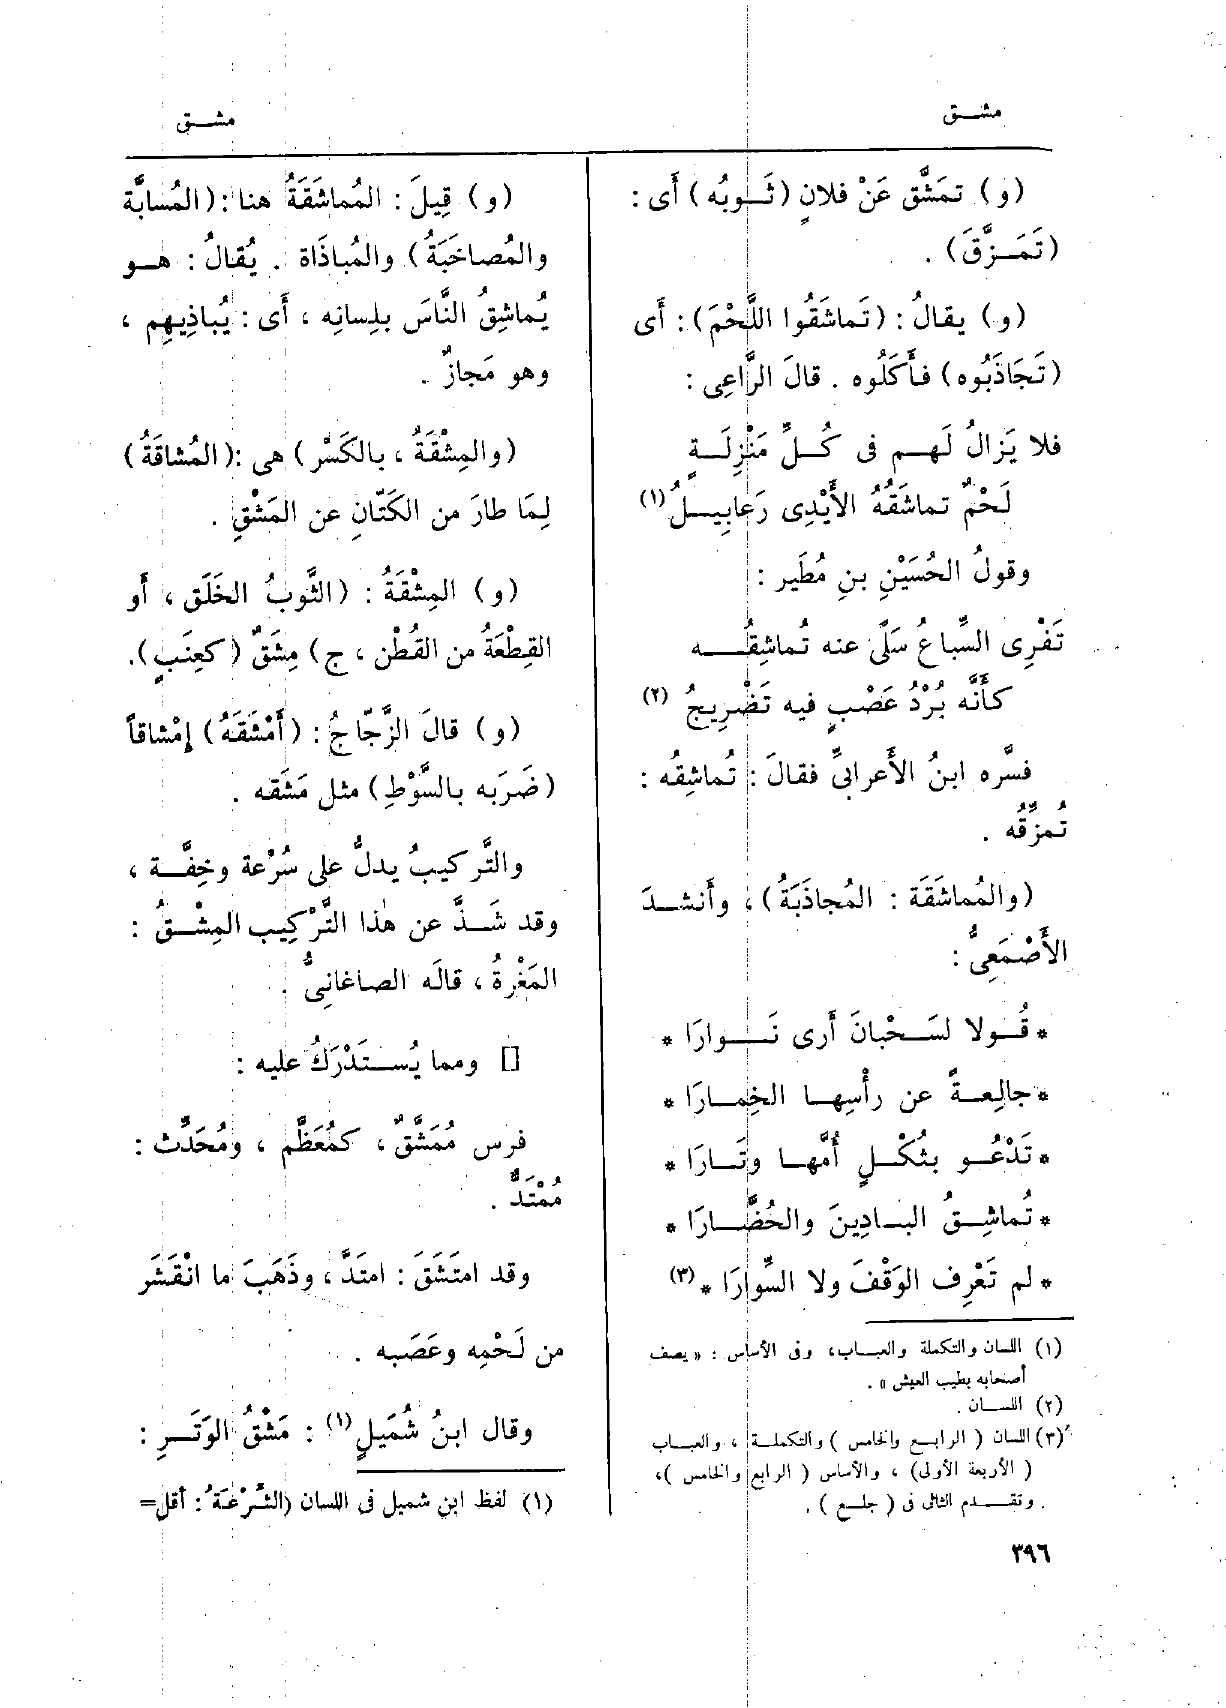 مشــق
مشــق
(و) تمَشَّق عَنْ فلانٍ (ثَــوبُه) أَى :
(تَمَــزَّقَ) .
(و) يقالُ : (تَماشَقُوا اللَّحْمَ) : أَى
(تَجَاذَبُوه) فأَكَلُوه . قالَ الرَّاعِى :
فلا يَزالُ لَهــم فى كُــلِّ مَنْزِلَــةٍ
لَحْمٌ تماشَقُهُ الأَيْدِى رَعابِيــلُ (١)
وقولُ الحُسَيْنِ بنِ مُطَير :
تَفْرِى السِّباعُ سَلًى عنه تُماشِقُــه
كأَنَّه بُرْدُ عَصْبٍ فيه تَضْرِيجُ (٢)
فسَّره ابنُ الأَعرابىِّ فقالَ : تُماشِقُه :
تُمزِّقُه .
(والمُماشَقَة : المُجاذَبَةُ) ، وأَنشــدَ
الأَصْمَعِىُّ :
* قُــولا لسَــحْبانَ أَرى نَــوارَا *
* جالِعــةً عن رأْسِهــا الخِمــارَا *
* تَدْعُــو بثُكْــلٍ أُمَّهــا وتَــارَا *
* تُماشِــقُ البــادِينَ والحُضَّــارَا *
* لم تَعْرِف الوَقْفَ ولا السِّوارَا * (٣)
(١) اللسان والتكملة والعبــاب، وفى الأساس : « يصف
أصحابه بطيب العيش » .
(٢) اللســان .
(٣) اللسان ( الرابــع والخامس ) والتكملــة ، والعبــاب
( الأربعة الأولى) ، والأساس ( الرابع والخامس )،
وتقــدم الثانى فى ( جلــع ) .
(و) قِيلَ : المُماشَقَةُ هنا :(المُسابَّة
والمُصاخَبَةُ) والمُباذَاة . يُقالُ : هــو
يُماشِقُ النَّاسَ بلِسانِه ، أَى : يُباذِيهِم ،
وهو مَجازٌ .
(والمِشْقَةُ ، بالكَسْر) هى :(المُشاقَةُ)
لِمَا طارَ من الكَتّانِ عن المَشْقِ .
(و) المِشْقَةُ : (الثَّوبُ الخَلَق ، أَو
القِطْعَةُ من القُطْن ، ج) مِشَقٌ (كعِنَبٍ).
(و) قالَ الزَّجّاجُ : (أَمْشَقَهُ) إِمْشاقاً
(ضَرَبَه بالسَّوْطِ) مثل مَشَقه .
والتَّركيبُ يدلُّ على سُرْعة وخِفَّــة ،
وقد شَــذَّ عن هٰذا التَّرْكِيب المِشْــقُ :
المَغْرةُ ، قالَه الصاغانِىُّ .
[] ومما يُســتَدْرَكُ عليه :
فرس مُمَشَّقٌ ، كمُعَظَّم ، ومُحَدِّث :
مُمْتَدٌّ .
وقد امتَشَقَ : امتَدَّ ، وذَهَبَ ما انْقَشَر
من لَحْمِه وعَصَبه .
وقال ابنُ شُمَيلٍ (١) : مَشْقُ الوَتَــرِ :
(١) لفظ ابن شميل فى اللسان (الشَّرْعَةُ : أقل=
٣٩٦